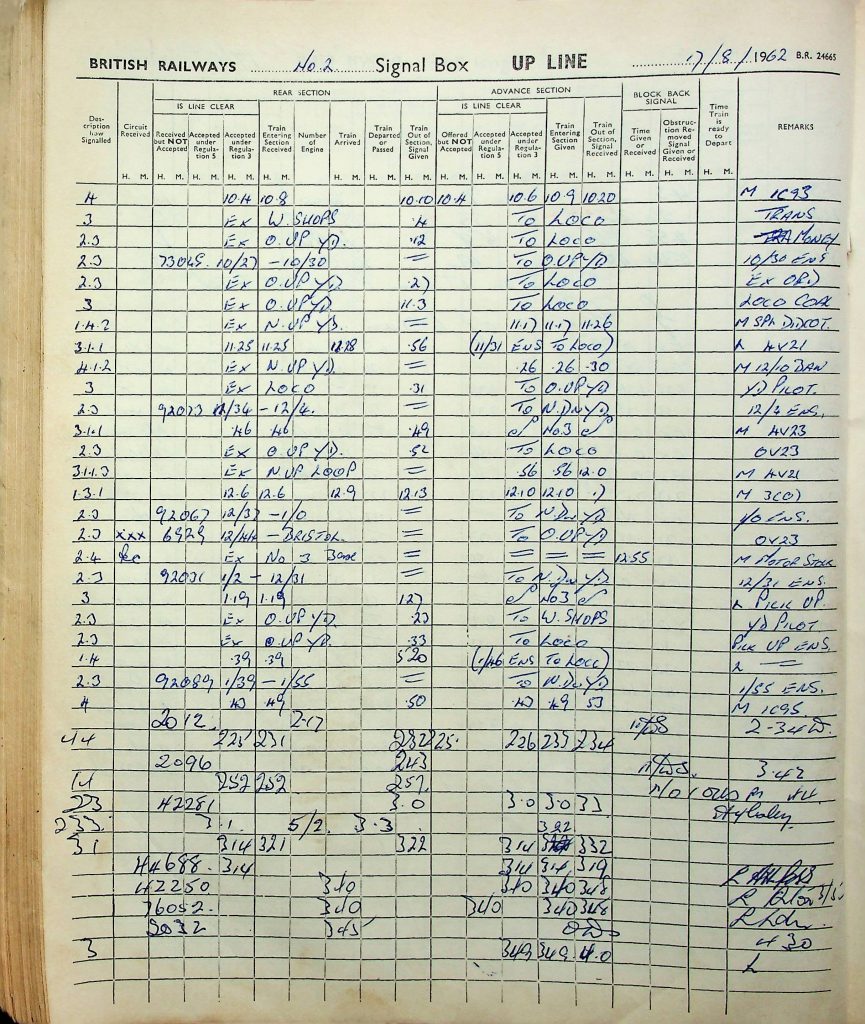 BRITISH RAILWAYS No. 2 Signal Box UP LINE 7/8/1962 B.R. 24665
REAR SECTION ADVANCE SECTION BLOCK BACK SIGNAL
IS LINE CLEAR IS LINE CLEAR
Description how Signalled Circuit Received Received but NOT Accepted Accepted under Regulation 5 Accepted under Regulation 3 Train Entering Section Received Number of Engine Train Arrived Train Departed or Passed Train Out of Section, Signal Given Offered but NOT Accepted Accepted under Regulation 5 Accepted under Regulation 3 Train Entering Section Given Train Out of Section, Signal Received Time Given or Received Obstruction Removed Signal Given or Received Time Train is ready to Depart REMARKS
H. M. H. M. H. M. H. M. H. M. H. M. H. M. H. M. H. M. H. M. H. M. H. M. H. M. H. M. H. M. H. M.
4 10.4 10.8 10.10 10.4 10.6 10.9 10.20 M 1C93
3 Ex W. SHOPS .4 TO LOCO TRANS
2.3 Ex O. UP YD. .12 TO LOCO MONEY
2.3 73045. 10/27 - 10/30 = TO O.UP YD 10/30 ENS
2.3 Ex O. UP YD .27 TO LOCO
3 Ex O. UP YD 11.3 TO LOCO LOCO COAL
1.4.2 Ex N. UP YD. = 11.17 11.17 11.26 M SPL DIDCOT.
3.1.1 11.25 11.25 11.28 .56 (11/31 ENS TO LOCO) 4V21
4.1.2 Ex N. UP YD = .26 .26 .30 M 12/10 BAN
3 Ex LOCO .31 TO O.UP YD YD PILOT.
2.3 92023 12/34 - 12/4. = TO N.DN YD. 12/4 ENS.
3.1.1 .46 .46 .49 No3 M 4V23
2.3 Ex O. UP YD. .52 TO LOCO 0V23
3.1.1.3 Ex N UP LOOP = .56 .56 12.0 M 4V21
1.3.1 12.6 12.6 12.9 12.13 12.10 12.10 M
2.3 92067 12/37 - 1/0 = TO N.DN YD 1/0 ENS.
2.3 xxx 6929 12/44 - BRISTOL. = TO O.UP YD 0V23
2.4 Ex No 3 Box = = = = 12.55 M MOTOR STOCK
2.3 92031 1/2 - 12/31 = TO N.DN YD 12/31 ENS.
3 1.19 1.19 1.27 No3 PICK UP.
2.3 Ex O. UP YD. .23 TO W. SHOPS YD PILOT.
2.3 Ex O. UP YD. .33 TO LOCO PICK UP ENS.
1.4 .39 .39 5.20 (1/46 ENS TO LOCO)
2.3 92089 1/39 - 1/55 = TO N.DN YD 1/55 ENS.
4 .49 .50 .49 .53 M 1C95.
2012. 2-17 2-34
44 225 231 226 233 234
2096 243 3.42
14 252 252 257
23 42281 3.0 3.0 3.0
233. 3.1. 5/2. 3.3 322
31 314 321 322 314 332
44688. 314 314 314 319
42250 340 340 340 348
76052. 340 340 340 348
345
3 349 349 4.0 430